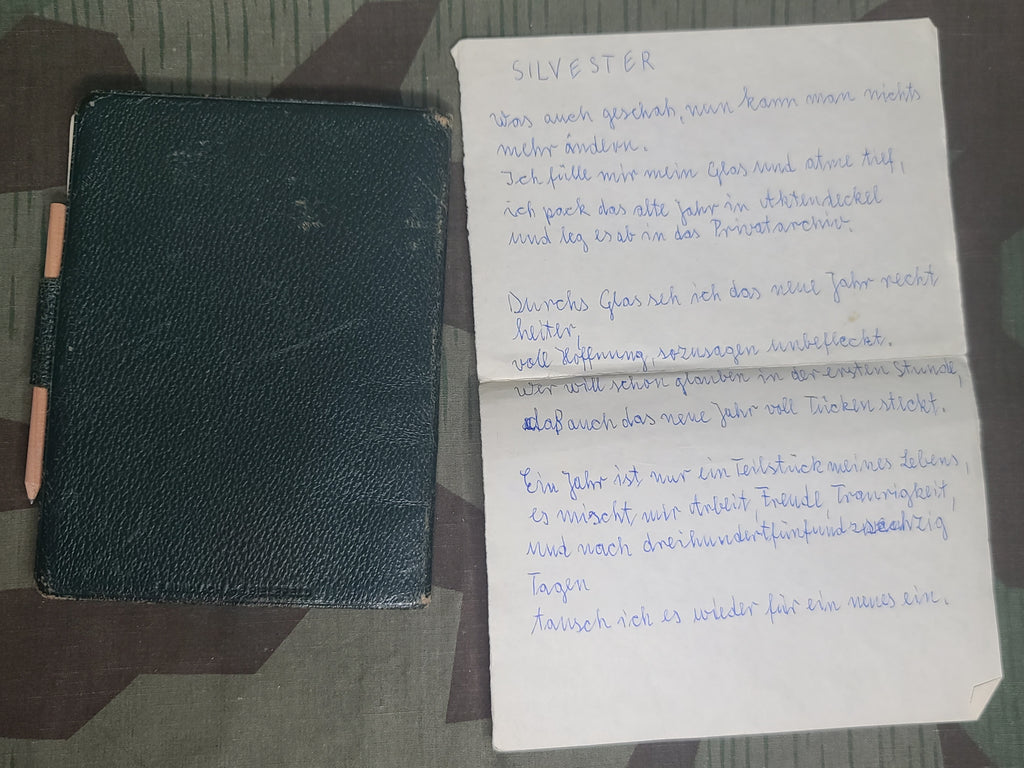 SILVESTER
Was auch geschah, nun kann man nichts
mehr ändern.
Ich fülle mir mein Glas und atme tief,
ich pack das alte Jahr in Aktendeckel
und leg es ab in das Privatarchiv.
Durchs Glas seh ich das neue Jahr recht
heiter,
voll Hoffnung, sozusagen unbefleckt.
Wer will schon glauben in der ersten Stunde,
daß auch das neue Jahr voll Tücken steckt.
Ein Jahr ist nur ein Teilstück meines Lebens,
es mischt mir Arbeit, Freude, Traurigkeit,
und nach dreihundertfünfundsechzig
Tagen
tausch ich es wieder für ein neues ein.